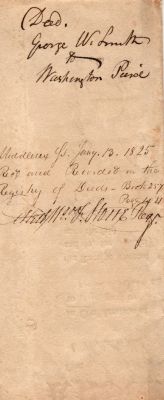 Deed.
George W. Smith
to
Washington Peirce
Middlesex Ss. Jany. 13. 1825
Recd and Recorded in the
Registry of Deeds - Book 257
Page
Wm. F. Stone Regr.